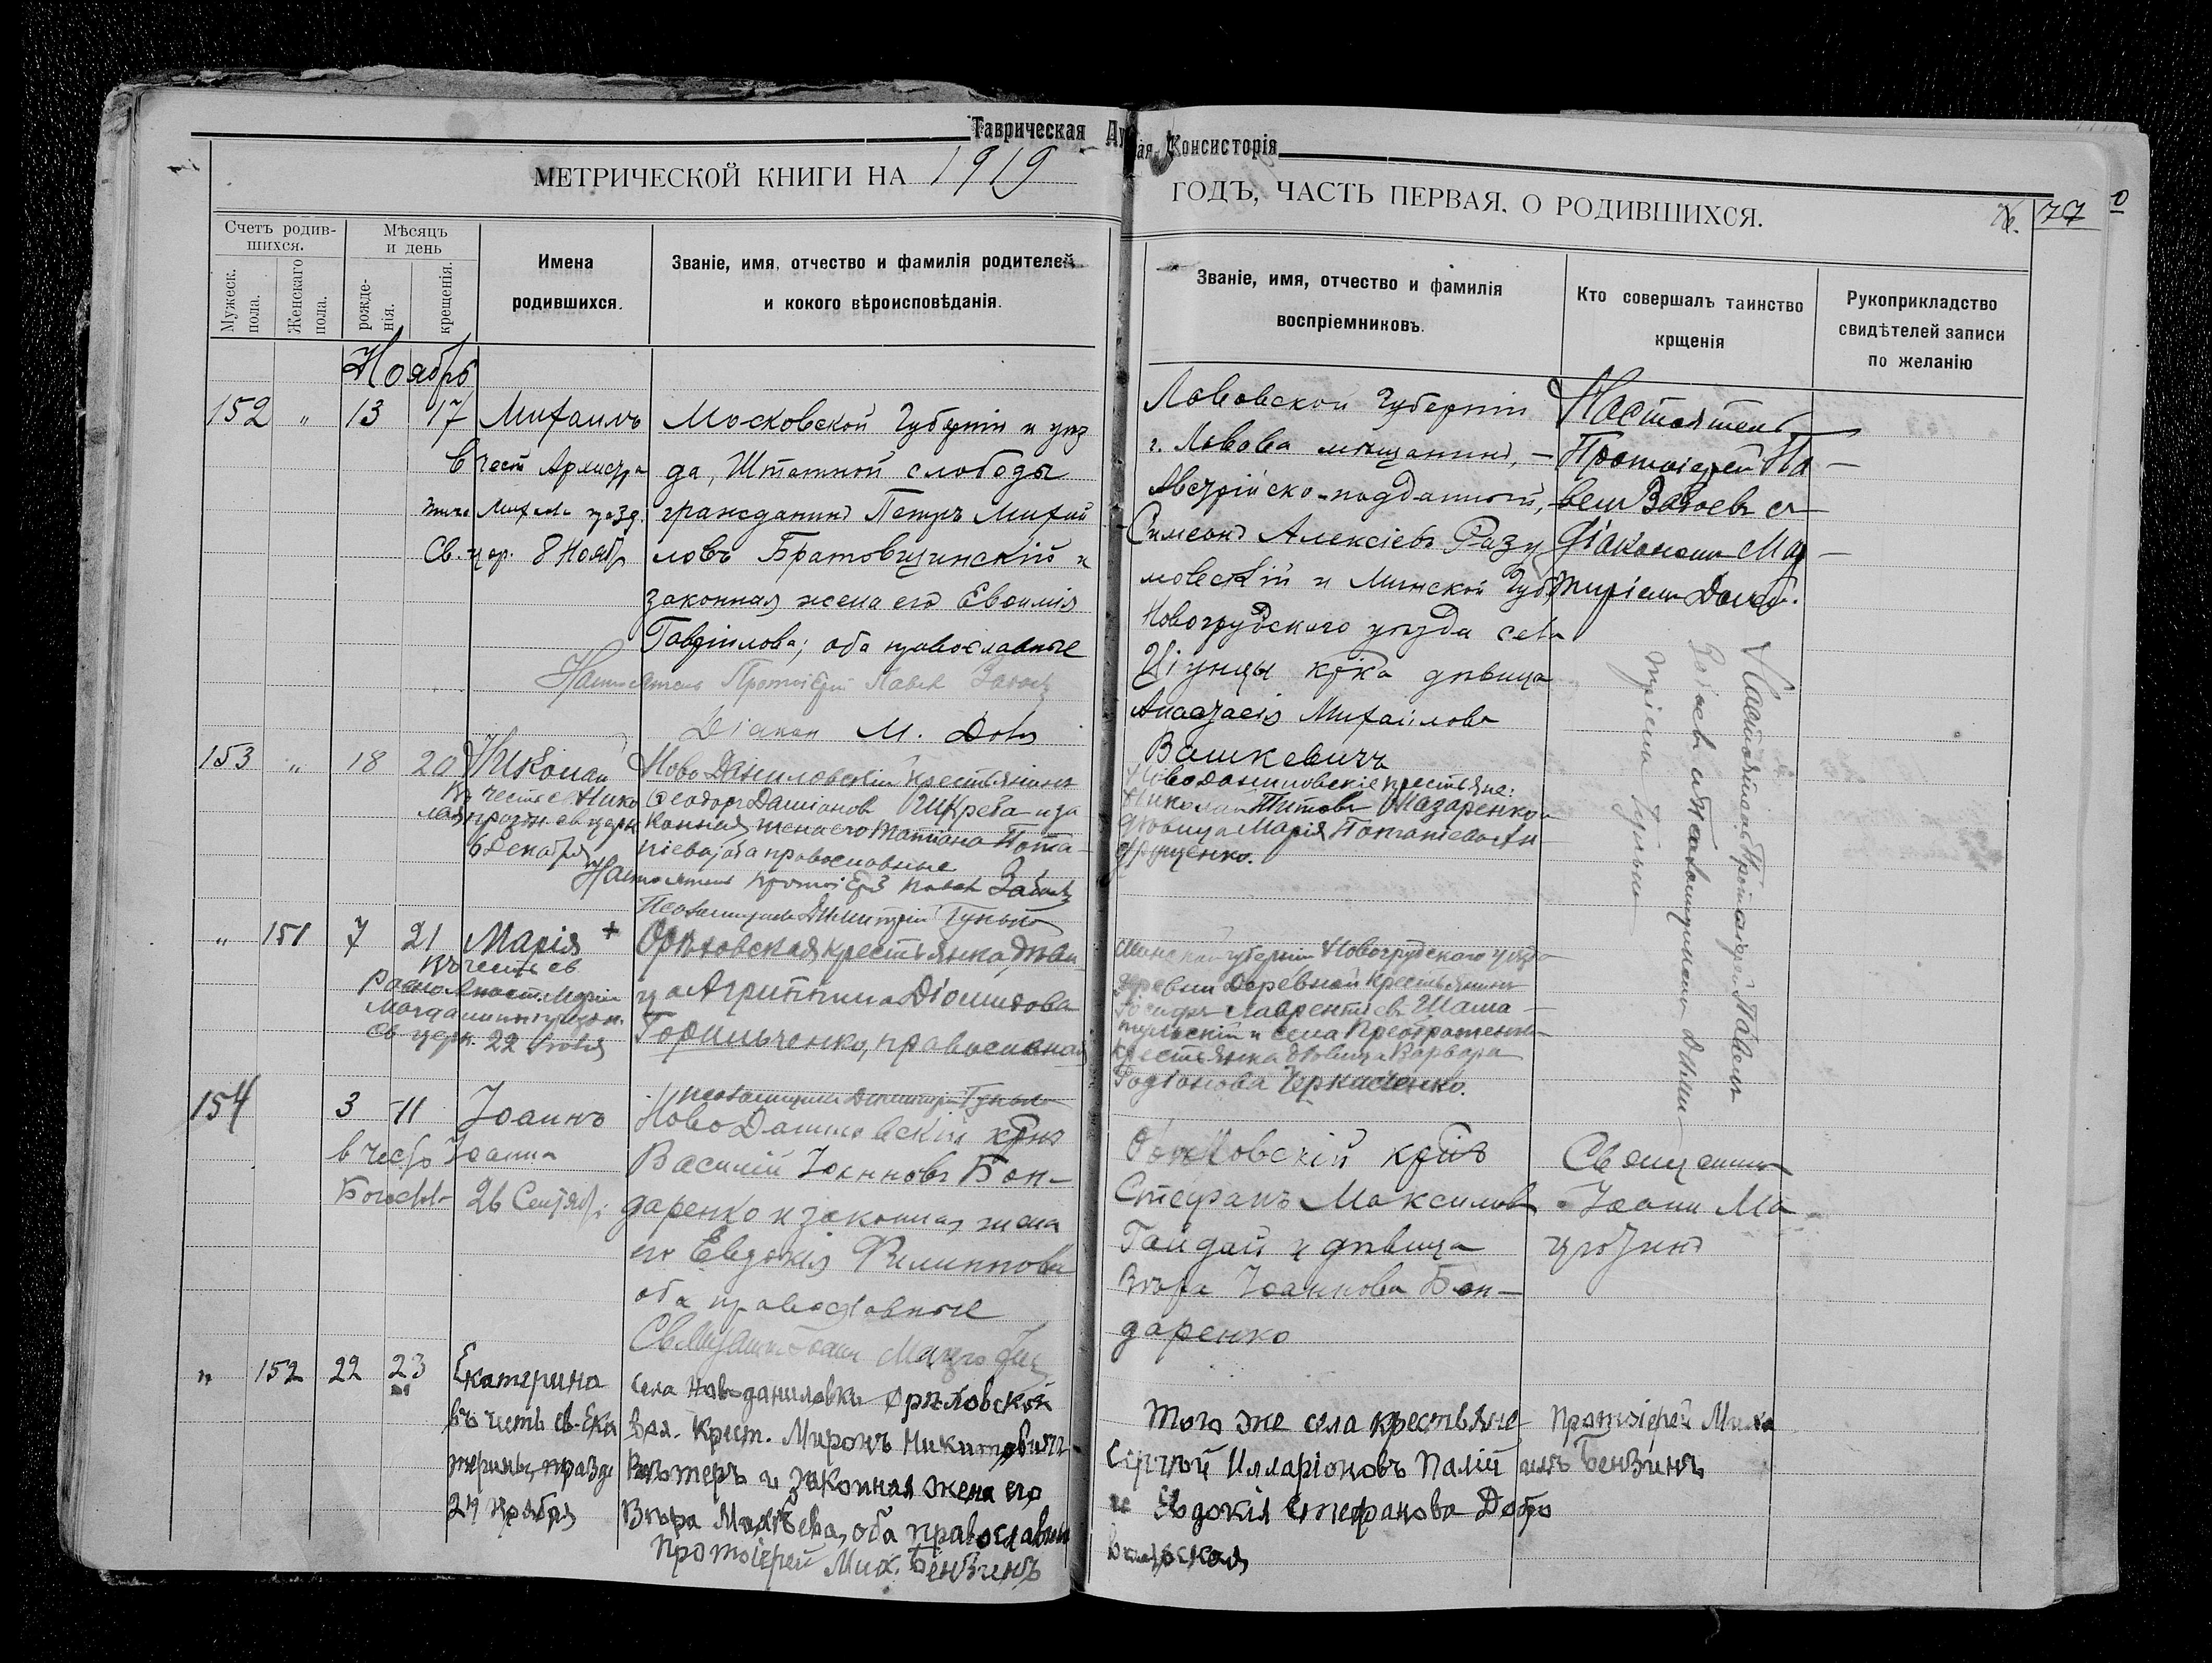 Таврическая Ду
ая Консисторія
МЕТРИЧЕСКОЙ КНИГИ НА 1919
ГОДЪ, ЧАСТЬ ПЕРВАЯ, О РОДИВШИХСЯ.
76. 77
Счетъ родив-
шихся.
Мужеск.
пола.
Женскаго
пола.
Мѣсяцъ
и день
рожде-
нія.
крещенія.
Имена
родившихся.
Званіе, имя, отчество и фамилія родителей
и кокого вѣроисповѣданія.
Званіе, имя, отчество и фамилія
воспріемниковъ.
Кто совершалъ таинство
крщенія
Рукоприкладство
свидѣтелей записи
по желанію
Ноябрь
152 " 13 17 Михаилъ
в чест Архистра
тига Михаила празд.
Св. цер. 8 Ноябр
Московской Губерніи и уѣз
да, Штатной слободы
гражданинъ Петръ Михай
ловъ Братовщинскій и
законная жена его Евфимія
Гавріилова; оба православные
Настоятель Протоіерей Павел
Діакон М.
Львовской Губерніи
г. Львова мѣщанинъ, —
Австрійско-подданный,
Симеонъ Алексіевъ Разу
мовскій и Минской Губ
Новогрудского уѣзда села
кр-ка дѣвица
Анастасія Михайлова
Вашкевичъ
Настоятель
Протоіерей Па
вел с
діаконом Мар
тиріем
153 " 18 20 Николай
Въ честь св. Нико
лая празн. св. церк
6 Декабря
Ново Даниловскій крестьянинъ
Ѳеодоръ Даміановъ и за
конная жена его Татіана Пота
піева, оба православные
Настоятель протоіерей Павел
Псаломщикъ Димитрій Гунько
Новоданиловскіе крестьяне:
Николай Титовъ Назаренко и
дѣвица Марія Потапіева Ан
друщенко.
Настоятель Протоіерей Павелъ
и Псаломщикомъ Дими
тріемъ Гунько
" 151 7 21 Марія +
Въ честь св
Равноапост. Маріи
Магдалины празн.
св церк. 22 Іюля
Орѣховская крестьянка, дѣви
ца Агриппина Діомидова
Горильченко, православная
Псаломщикъ Димитрій Гунько
Минской губерніи Новогрудского уѣзда
деревни Деревной крестьянинъ
Іосифъ Лаврентіевъ Шата
и села Преображенки
крестьянка дѣвица Варвара
Родіонова
154 3 11 Іоаннъ
в честь Іоанна
Богосл. 26 Сентяб.
Ново Даниловскій кр-нъ
Василій Іоанновъ Бон-
даренко и законная жена
его Евдокія Филиппова
оба православные
Священникъ Іоанн
Орѣховскій кр-нъ
Стефанъ Максимовъ
Гайдай и дѣвица
Вѣра Іоаннова Бон-
даренко
Священникъ
Іоанн
" 152 22 23 Екатерина
въ честь св. Ека
терины, празд
24 Ноября
села Новоданиловки Орѣховской
вол. крест. Миронъ Никитовичъ
и законная жена его
Вѣра Матѳѣева, оба православны
Протоіерей Мих. Бензинъ
Того же села крестьяне
Сергѣй Илларіоновъ Палій
и Евдокія Стефанова Добро
вольская
Протоіерей Миха
илъ Бензинъ